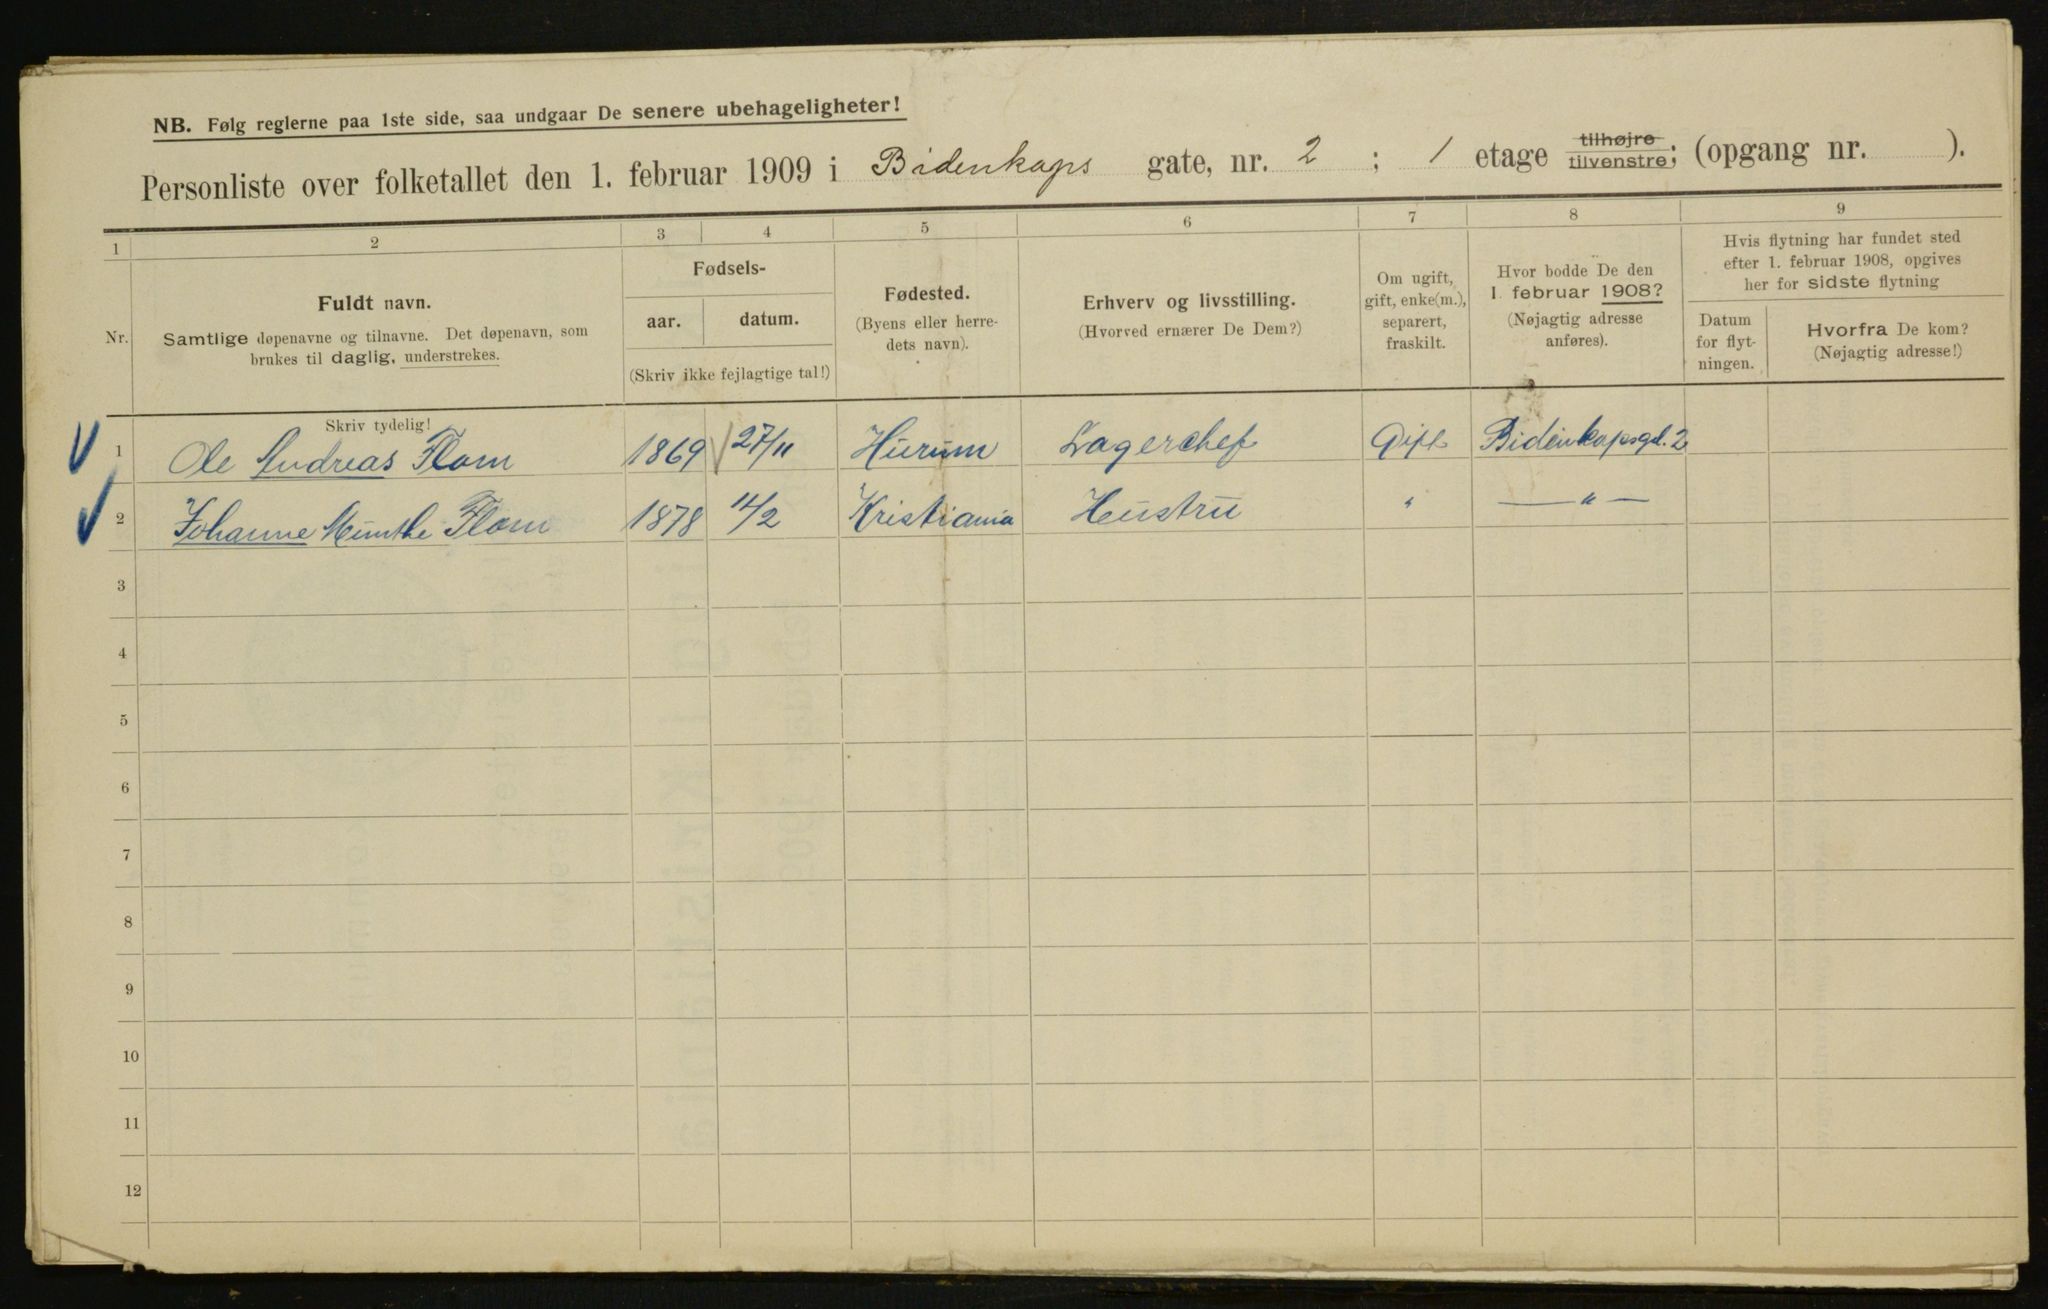 NB. Følg reglerne paa 1ste side, saa undgaar De senere ubehageligheter!
Personliste over folketallet den 1. februar 1909 i Bidenkaps gate, nr. 2 ; 1 etage tilhøjre tilvenstre; (opgang nr. ).
1 2 3 4 5 6 7 8 9
Nr.
Fuldt navn.
Samtlige døpenavne og tilnavne. Det døpenavn, som
brukes til daglig, understrekes.
Fødsels-
aar. datum.
(Skriv ikke fejlagtige tal!)
Fødested.
(Byens eller herre-
dets navn).
Erhverv og livsstilling.
(Hvorved ernærer De Dem?)
Om ugift,
gift, enke(m.),
separert,
fraskilt.
Hvor bodde De den
1. februar 1908?
(Nøjagtig adresse
anføres).
Hvis flytning har fundet sted
efter 1. februar 1908, opgives
her for sidste flytning
Datum
for flyt-
ningen.
Hvorfra De kom?
(Nøjagtig adresse!)
Skriv tydelig!
1 Ole Andreas Flom 1869 27/11 Hurum Lagerchef Gift Bidenkapsgd. 2
2 Johanne Munthe Flom 1878 11/2 Kristiania Hustru " — " —
3
4
5
6
7
8
9
10
11
12